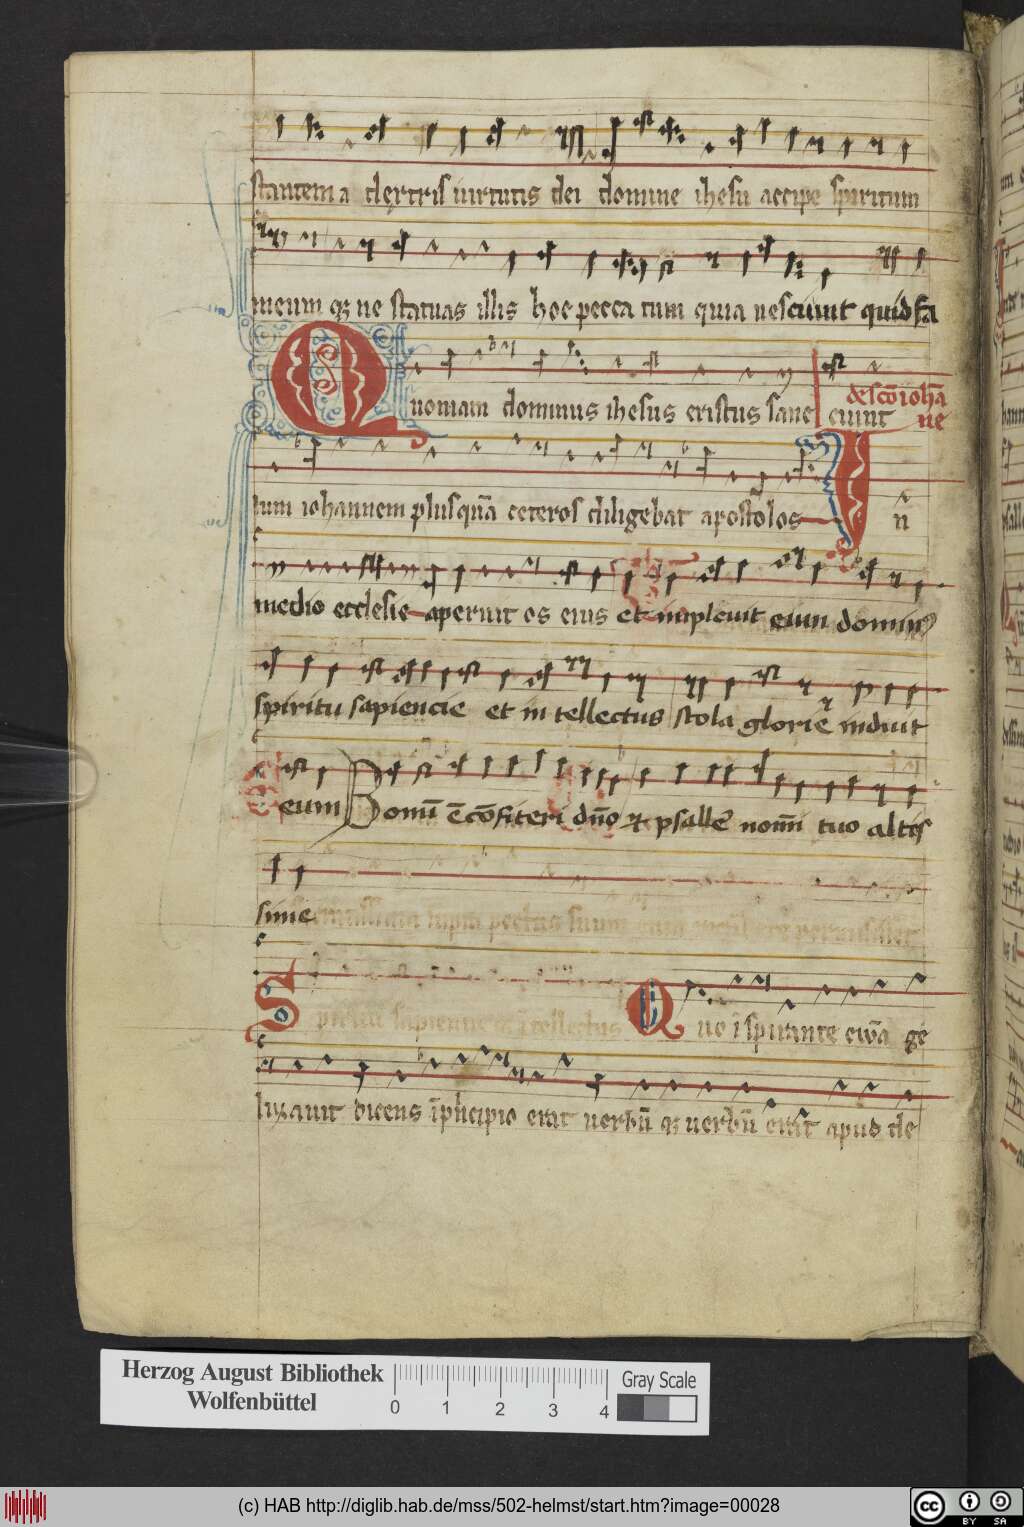 stantem a dextris uirtutis dei domine ihesu accipe spiritum
meum qz ne statuas illis hoc peccatum quia nesciunt quid fa
Quoniam dominus ihesus cristus sanc ciunt
de sco iohāne
tum iohannem plus quā ceteros diligebat apostolos In
medio ecclesie aperuit os eius et impleuit eum dominꝰ
spiritu sapiencie et intellectus stola glorie induit
eum Bonū ē cōfiteri dno et psalle nomī tuo altis
sime
Spiritu sapiencie et ītellectus Que īspirante ewā ge
lizauit dicens ī pricipio erat uerbū qz uerbū erat apud de
Herzog August Bibliothek
Wolfenbüttel
0 1 2 3 4
Gray Scale
(c) HAB http://diglib.hab.de/mss/502-helmst/start.htm?image=00028
cc BY SA